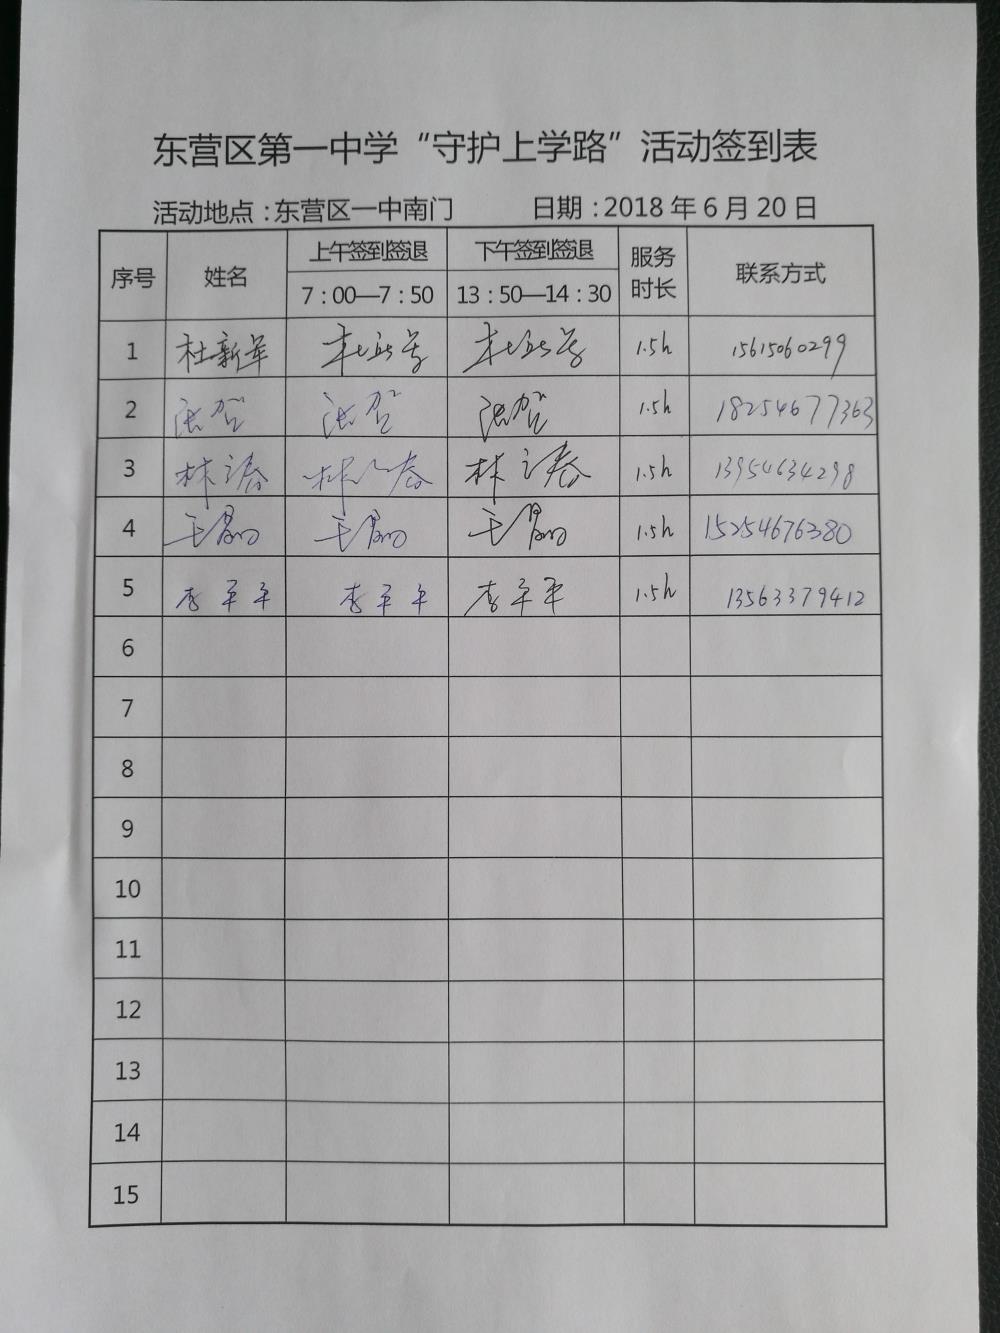 东营区第一中学“守护上学路”活动签到表
活动地点:东营区一中南门 日期:2018年6月20日
序号 姓名 上午签到签退 下午签到签退 服务时长 联系方式
7:00—7:50 13:50—14:30
1 杜新军 杜新军 杜新军 1.5h 15615060299
2 张贺 张贺 张贺 1.5h 18254677363
3 林 春 林 春 林 春 1.5h 13954634298
4 王 王 王 1.5h 15254676380
5 李平平 李平平 李平平 1.5h 13563379412
6
7
8
9
10
11
12
13
14
15